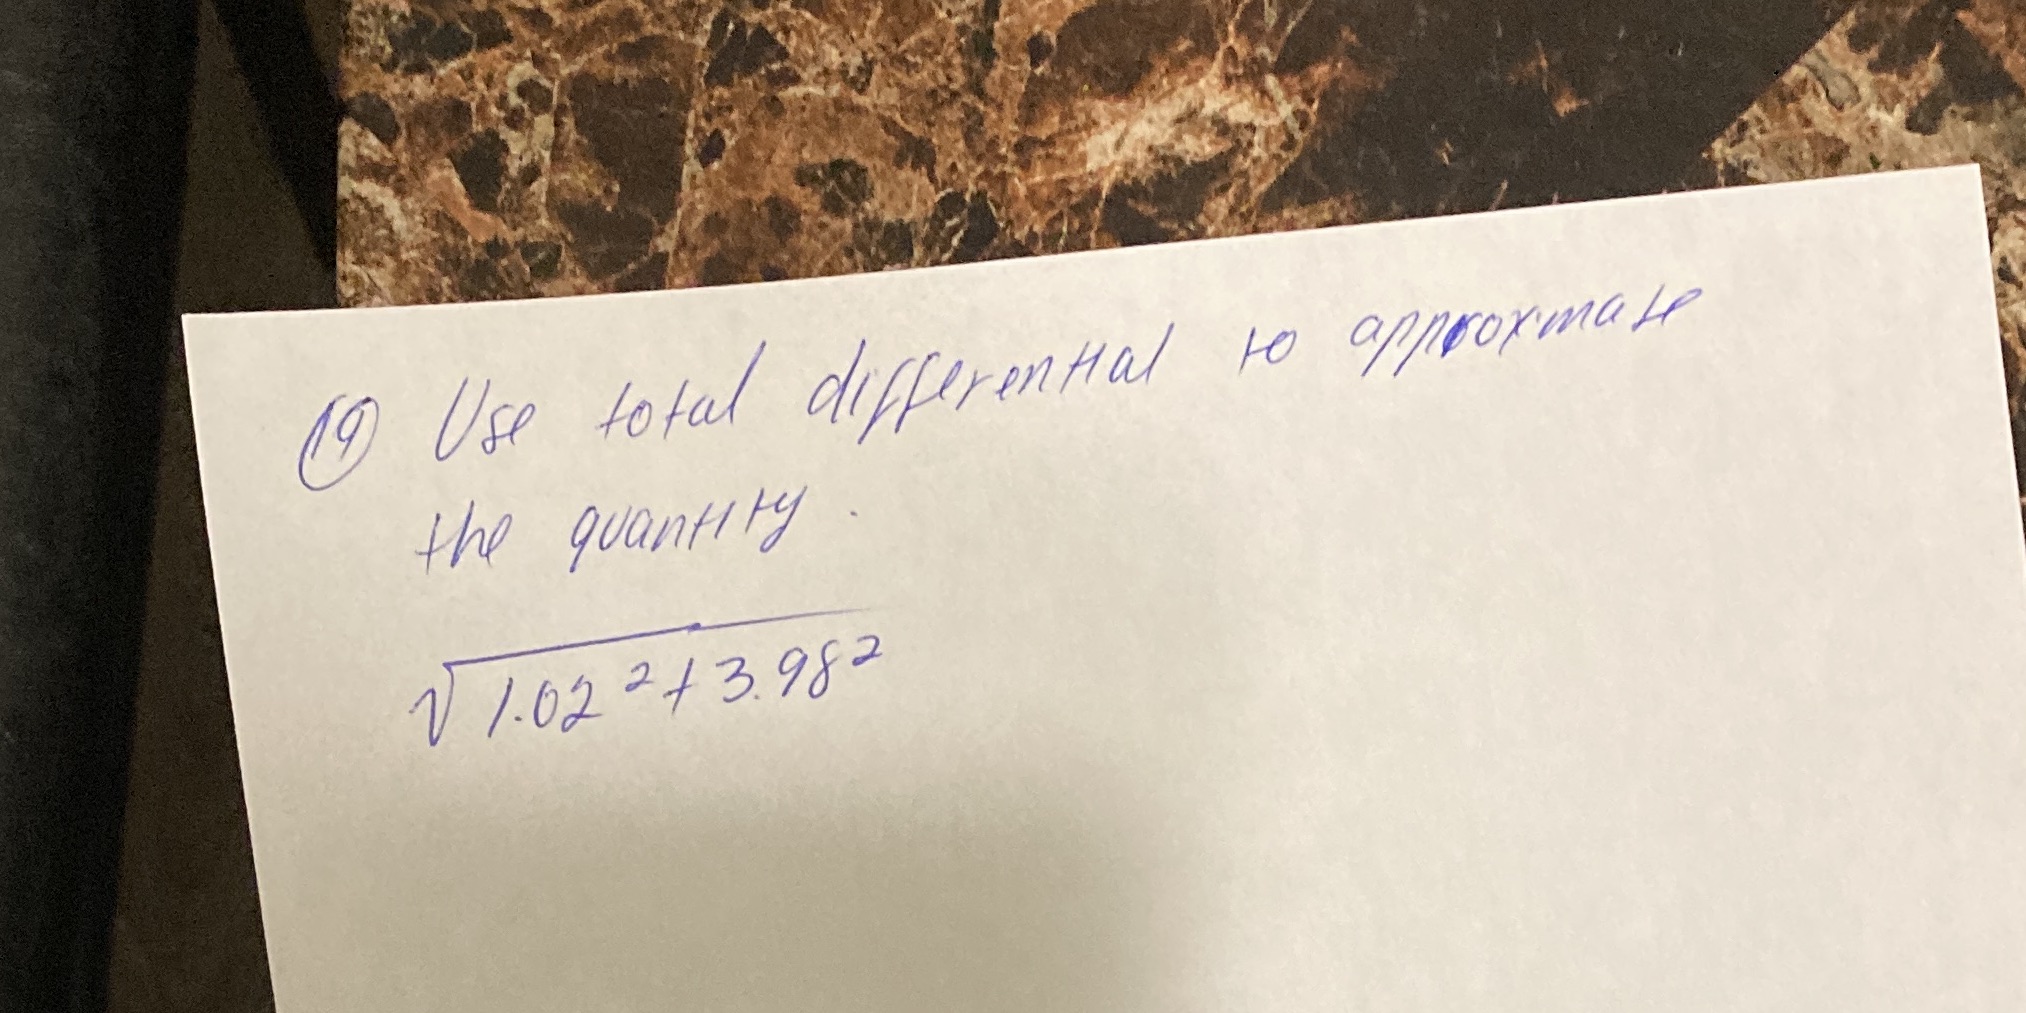 19 Use total differential to approxmate
the quantity.
√1.02²+3.98²